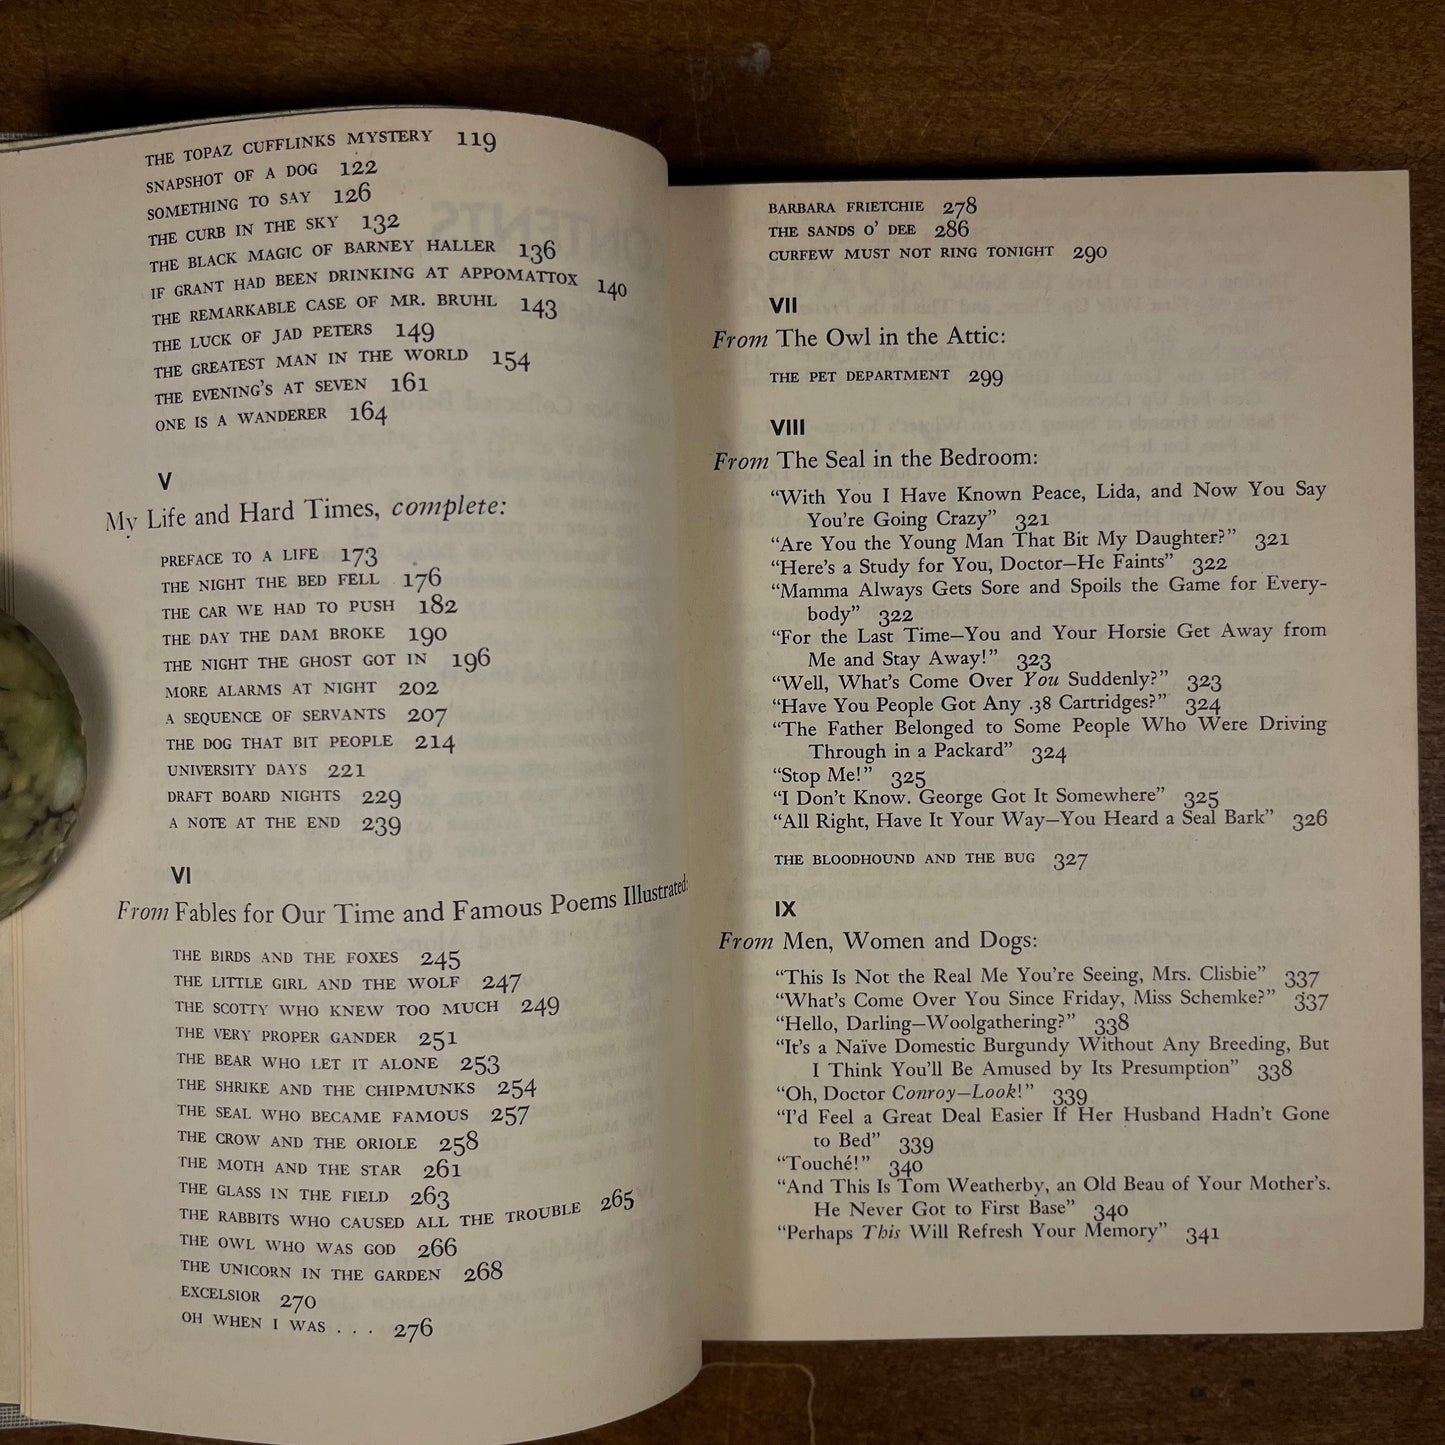 THE TOPAZ CUFFLINKS MYSTERY 119
SNAPSHOT OF A DOG 122
SOMETHING TO SAY 126
THE CURB IN THE SKY 132
THE BLACK MAGIC OF BARNEY HALLER 136
IF GRANT HAD BEEN DRINKING AT APPOMATTOX 140
THE REMARKABLE CASE OF MR. BRUHL 143
THE LUCK OF JAD PETERS 149
THE GREATEST MAN IN THE WORLD 154
THE EVENING'S AT SEVEN 161
ONE IS A WANDERER 164
V
My Life and Hard Times, complete:
PREFACE TO A LIFE 173
THE NIGHT THE BED FELL 176
THE CAR WE HAD TO PUSH 182
THE DAY THE DAM BROKE 190
THE NIGHT THE GHOST GOT IN 196
MORE ALARMS AT NIGHT 202
A SEQUENCE OF SERVANTS 207
THE DOG THAT BIT PEOPLE 214
UNIVERSITY DAYS 221
DRAFT BOARD NIGHTS 229
A NOTE AT THE END 239
VI
From Fables for Our Time and Famous Poems Illustrated:
THE BIRDS AND THE FOXES 245
THE LITTLE GIRL AND THE WOLF 247
THE SCOTTY WHO KNEW TOO MUCH 249
THE VERY PROPER GANDER 251
THE BEAR WHO LET IT ALONE 253
THE SHRIKE AND THE CHIPMUNKS 254
THE SEAL WHO BECAME FAMOUS 257
THE CROW AND THE ORIOLE 258
THE MOTH AND THE STAR 261
THE GLASS IN THE FIELD 263
THE RABBITS WHO CAUSED ALL THE TROUBLE 265
THE OWL WHO WAS GOD 266
THE UNICORN IN THE GARDEN 268
EXCELSIOR 270
OH WHEN I WAS . . . 276
BARBARA FRIETCHIE 278
THE SANDS O' DEE 286
CURFEW MUST NOT RING TONIGHT 290
VII
From The Owl in the Attic:
THE PET DEPARTMENT 299
VIII
From The Seal in the Bedroom:
"With You I Have Known Peace, Lida, and Now You Say
You're Going Crazy" 321
"Are You the Young Man That Bit My Daughter?" 321
"Here's a Study for You, Doctor—He Faints" 322
"Mamma Always Gets Sore and Spoils the Game for Every-
body" 322
"For the Last Time—You and Your Horsie Get Away from
Me and Stay Away!" 323
"Well, What's Come Over You Suddenly?" 323
"Have You People Got Any .38 Cartridges?" 324
"The Father Belonged to Some People Who Were Driving
Through in a Packard" 324
"Stop Me!" 325
"I Don't Know. George Got It Somewhere" 325
"All Right, Have It Your Way—You Heard a Seal Bark" 326
THE BLOODHOUND AND THE BUG 327
IX
From Men, Women and Dogs:
"This Is Not the Real Me You're Seeing, Mrs. Clisbie" 337
"What's Come Over You Since Friday, Miss Schemke?" 337
"Hello, Darling—Woolgathering?" 338
"It's a Naïve Domestic Burgundy Without Any Breeding, But
I Think You'll Be Amused by Its Presumption" 338
"Oh, Doctor Conroy—Look!" 339
"I'd Feel a Great Deal Easier If Her Husband Hadn't Gone
to Bed" 339
"Touché!" 340
"And This Is Tom Weatherby, an Old Beau of Your Mother's.
He Never Got to First Base" 340
"Perhaps This Will Refresh Your Memory" 341